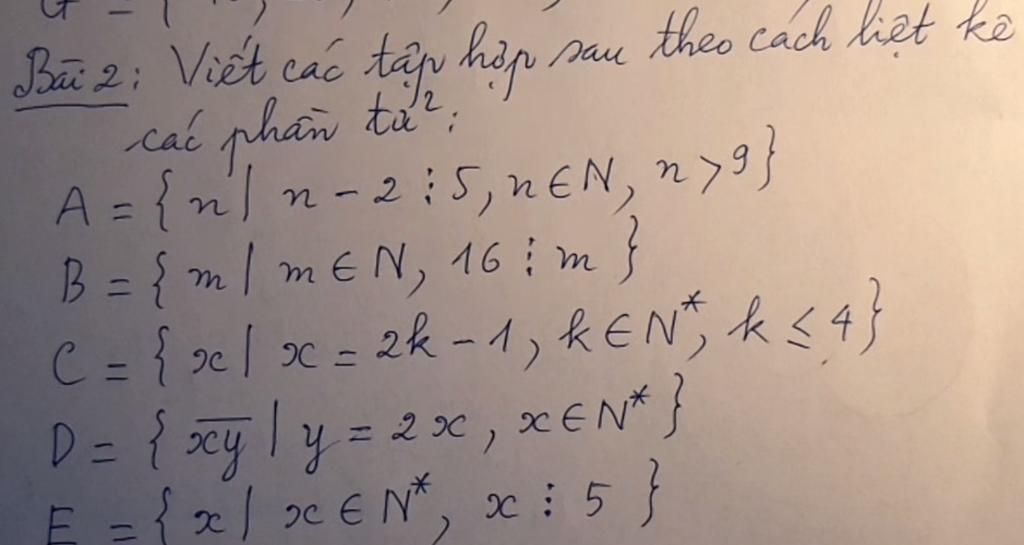 Bài 2: Viết các tập hợp sau theo cách liệt kê
các phần tử:
A = { n | n - 2 ⋮ 5, n ∈ N, n > 9 }
B = { m | m ∈ N, 16 ⋮ m }
C = { x | x = 2k - 1, k ∈ N*, k ≤ 4 }
D = { x̅y̅ | y = 2x, x ∈ N* }
E = { x | x ∈ N*, x ⋮ 5 }